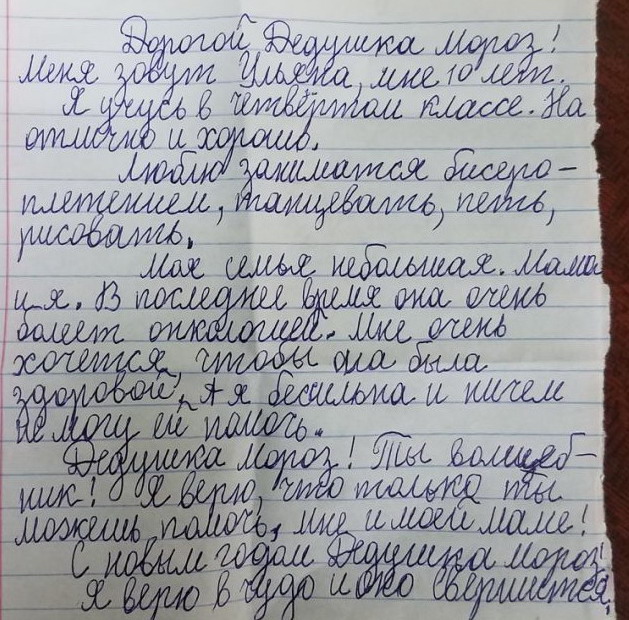 Дорогой Дедушка Мороз!
Меня зовут Ульяна, мне 10 лет.
Я учусь в четвёртом классе. На
отлично и хорошо.
Люблю заниматся бисеро-
плетением, танцевать, петь,
рисовать.
Моя семья небольшая. Мама
и я. В последнее время она очень
болеет онкологией. Мне очень
хочется, чтобы она была
здоровой, А я бессильна и ничем
не могу ей помочь.
Дедушка мороз! Ты волшеб-
ник! Я верю, что только ты
можешь помочь, мне и моей маме!
С новым годом Дедушка мороз!
Я верю в чудо и оно свершится.